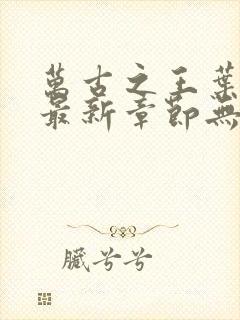 萬古之王葉
最新章節無
臟兮兮